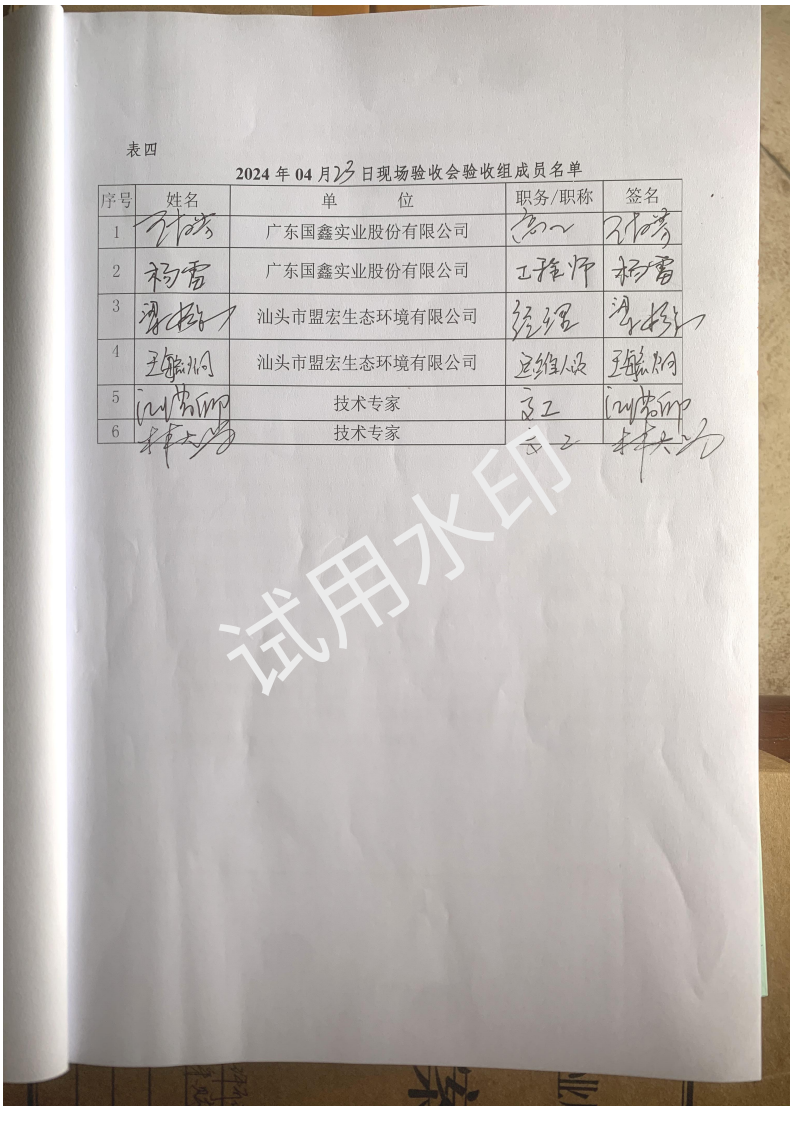 表四
2024 年 04 月 23 日现场验收会验收组成员名单
序号 姓名 单 位 职务/职称 签名
1 广东国鑫实业股份有限公司 高工
2 杨雷 广东国鑫实业股份有限公司 工程师 杨雷
3 汕头市盟宏生态环境有限公司 经理
4 汕头市盟宏生态环境有限公司 运维人员
5 技术专家 高工
6 技术专家 高工
试用水印